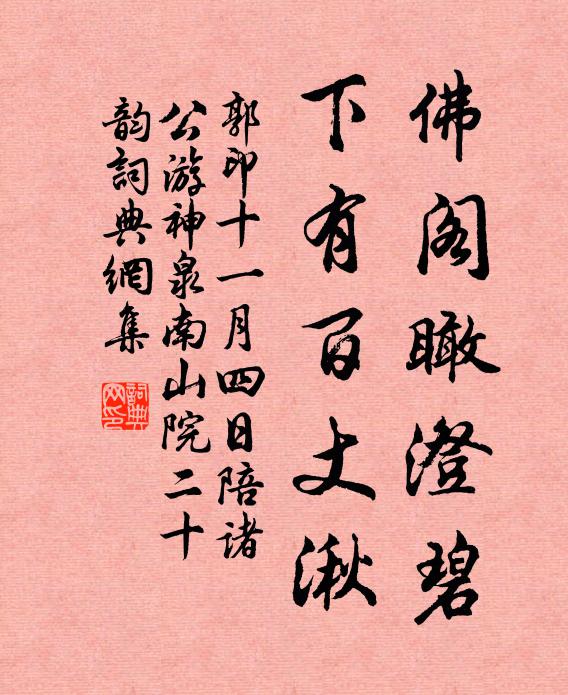 佛阁瞰澄碧
下有百丈湫
郭印十一月四日陪诸
公游神泉南山院二十
韵词典网集
詞典
网印